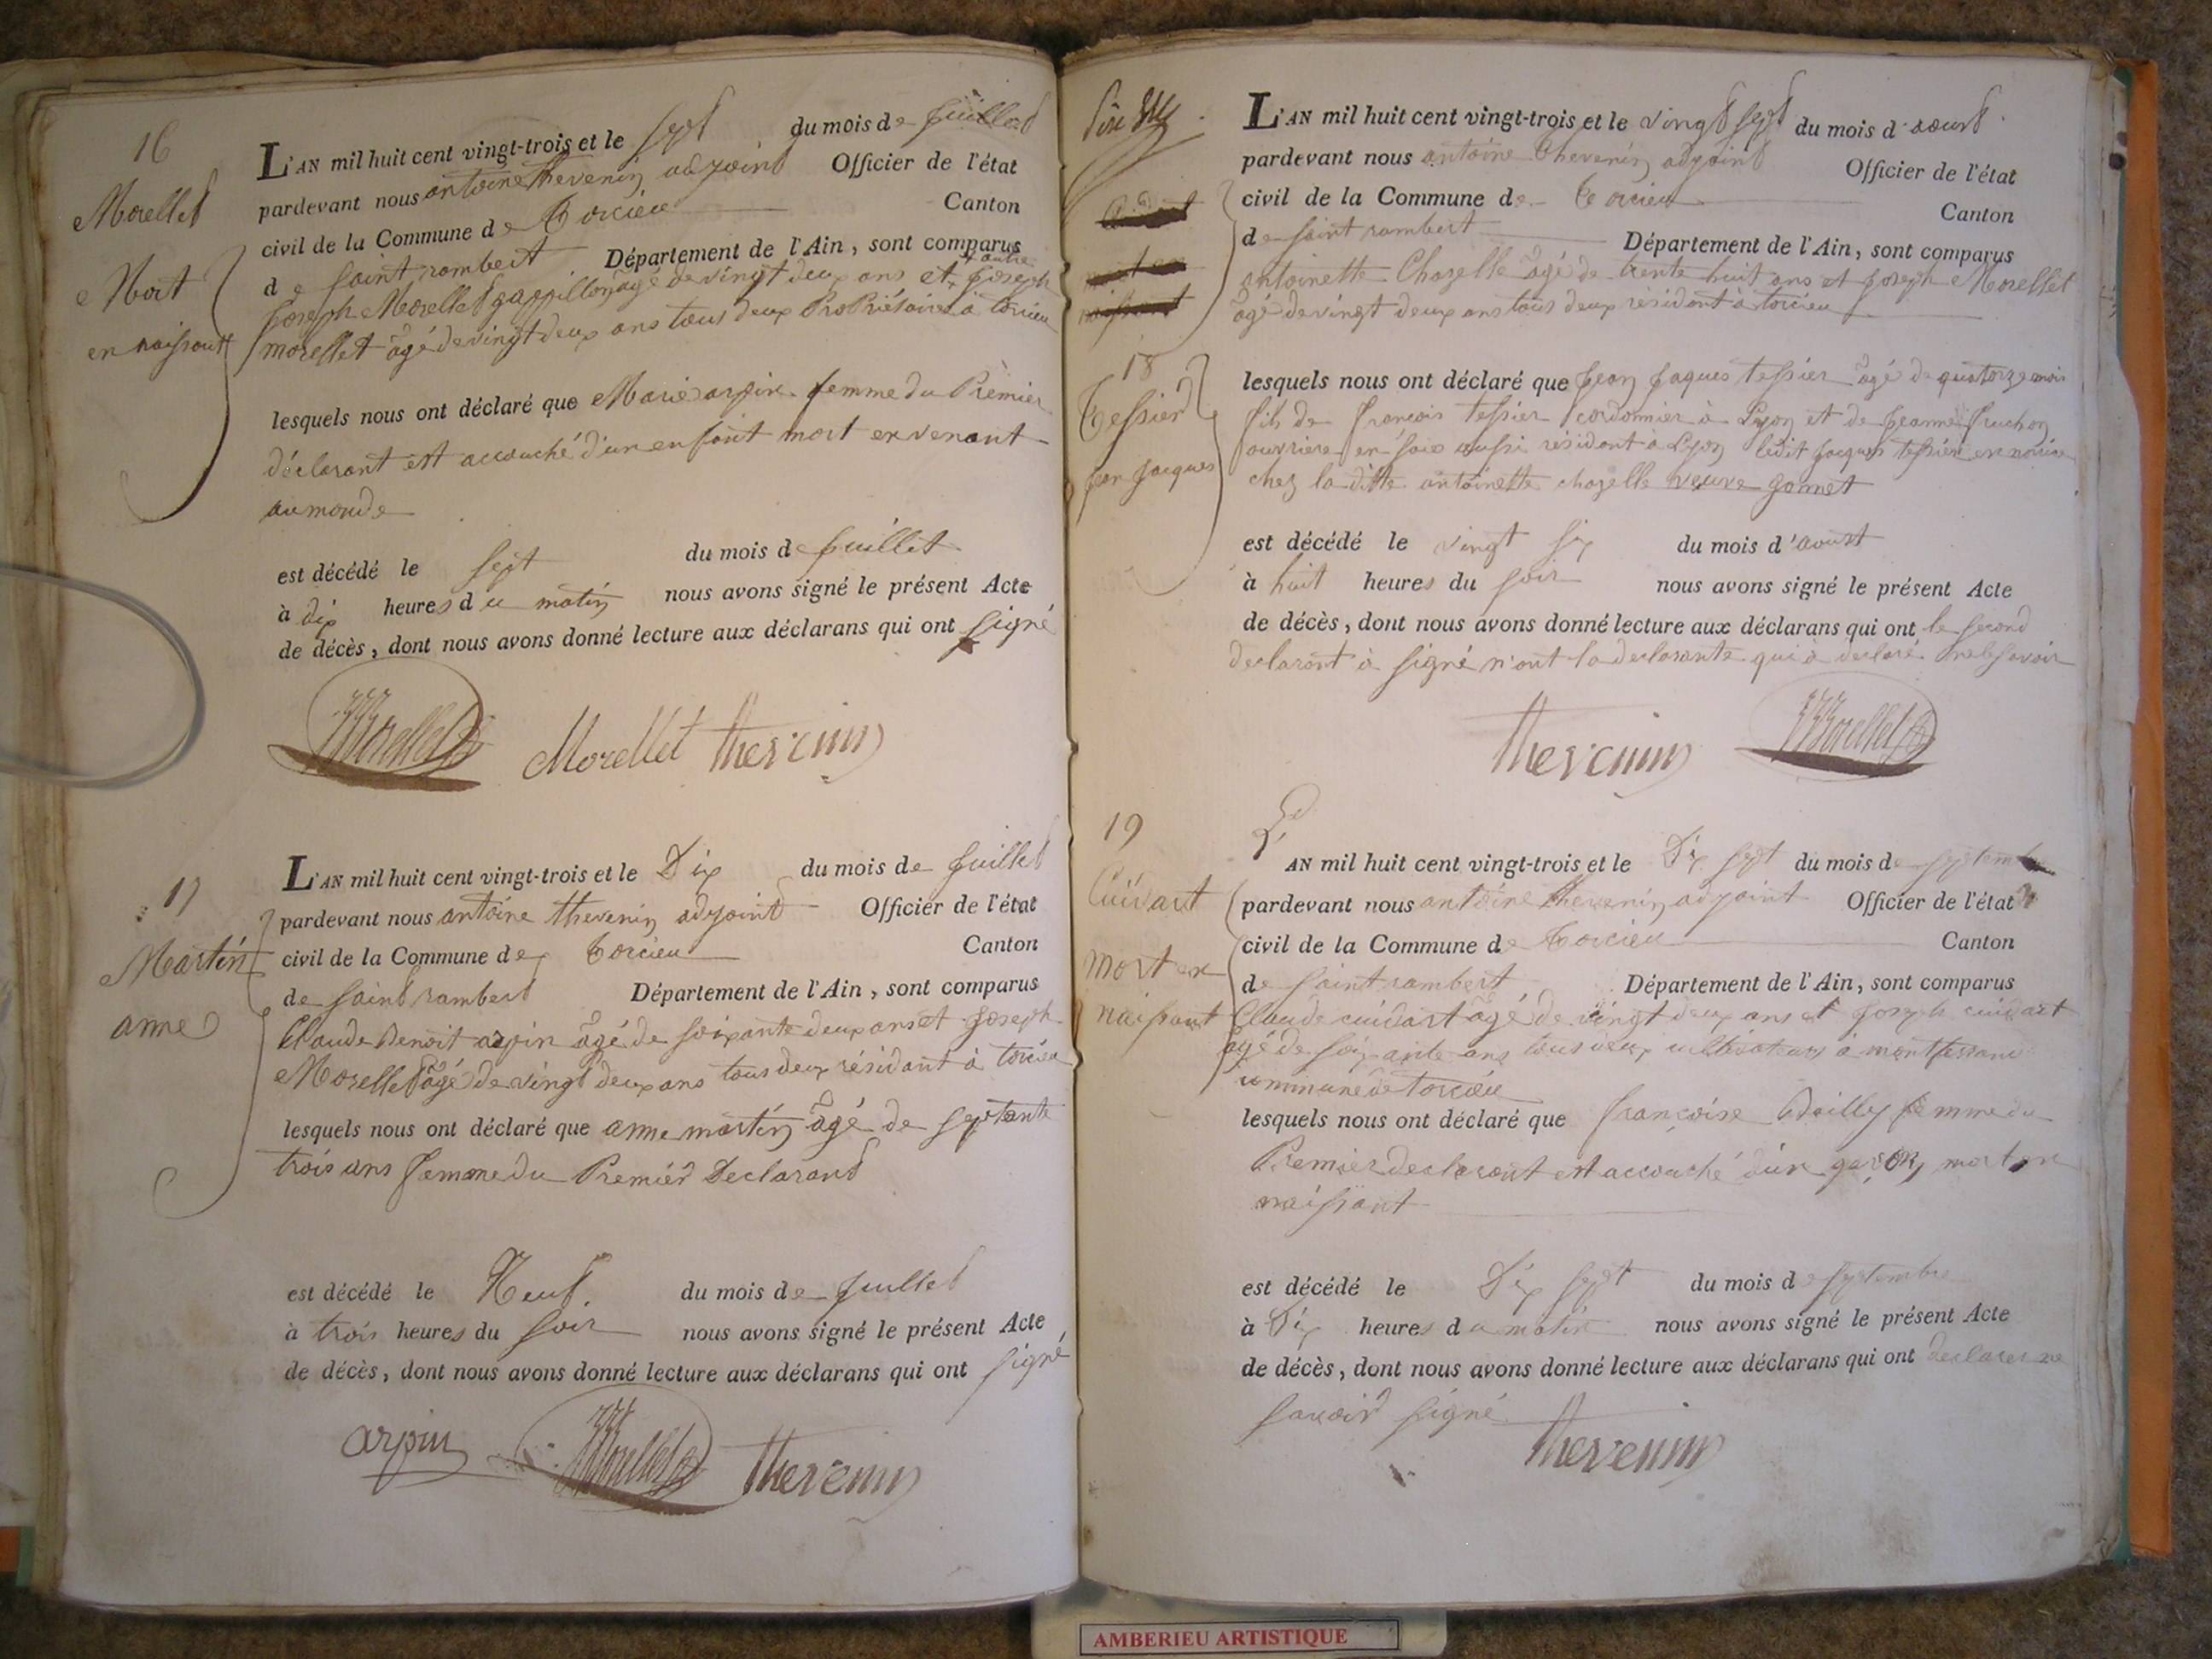 16
Morellet
Mort
en naissant
L'AN mil huit cent vingt-trois et le sept du mois de juillet
pardevant nous antoine thevenin adjoint Officier de l'état
civil de la Commune de torcieu Canton
de saint rambert Département de l'Ain, sont comparus
joseph Morellet âgé de vingt deux ans et autre joseph
morellet âgé de vingt deux ans tous deux Propriétaires à torcieu
lesquels nous ont déclaré que Marie arpin femme du Premier
déclarant est accouché d'un enfant mort en venant
au monde
est décédé le sept du mois de juillet
à dix heures du matin nous avons signé le présent Acte
de décès, dont nous avons donné lecture aux déclarans qui ont signé
Morellet Morellet thevenin
17
Martin
anne
L'AN mil huit cent vingt-trois et le Dix du mois de juillet
pardevant nous antoine thevenin adjoint Officier de l'état
civil de la Commune de torcieu Canton
de saint rambert Département de l'Ain, sont comparus
Claude Benoit arpin âgé de soixante deux ans et joseph
Morellet âgé de vingt deux ans tous deux résidant à torcieu
lesquels nous ont déclaré que anne martin âgé de septante
trois ans femme du Premier Declarant
est décédé le Neuf du mois de juillet
à trois heures du soir nous avons signé le présent Acte
de décès, dont nous avons donné lecture aux déclarans qui ont signé
arpin Morellet thevenin
L'AN mil huit cent vingt-trois et le vingt sept du mois d'aoust
pardevant nous antoine thevenin adjoint Officier de l'état
civil de la Commune de torcieu Canton
de saint rambert Département de l'Ain, sont comparus
antoinette Chazelle âgé de trente huit ans et joseph Morellet
âgé de vingt deux ans tous deux résidant à torcieu
18
tessier
jean jacques
lesquels nous ont déclaré que jean jaques tessier âgé de quatorze mois
fils de françois tessier cordonnier à Lyon et de jeanne fruchon
ouvriere en soie aussi résidant à Lyon ledit jacques tessier en
chez la ditte antoinette chazelle veuve gonnet
est décédé le vingt six du mois d'aoust
à huit heures du soir nous avons signé le présent Acte
de décès, dont nous avons donné lecture aux déclarans qui ont le second
declarant à signé n'ont la declarante qui à declaré ne le savoir
thevenin Morellet
19
Cuidart
mort en
naissant
L'AN mil huit cent vingt-trois et le Dix sept du mois de septembre
pardevant nous antoine thevenin adjoint Officier de l'état
civil de la Commune de torcieu Canton
de saint rambert Département de l'Ain, sont comparus
Claude cuidart âgé de vingt deux ans et joseph cuidart
âgé de soixante ans tous deux cultivateurs à montferrand
commune de torcieu
lesquels nous ont déclaré que françoise femme du
Premier declarant est accouché d'un garçon mort en
naissant
est décédé le Dix sept du mois de septembre
à Dix heures du matin nous avons signé le présent Acte
de décès, dont nous avons donné lecture aux déclarans qui ont declarer ne
savoir signé
thevenin
AMBERIEU ARTISTIQUE